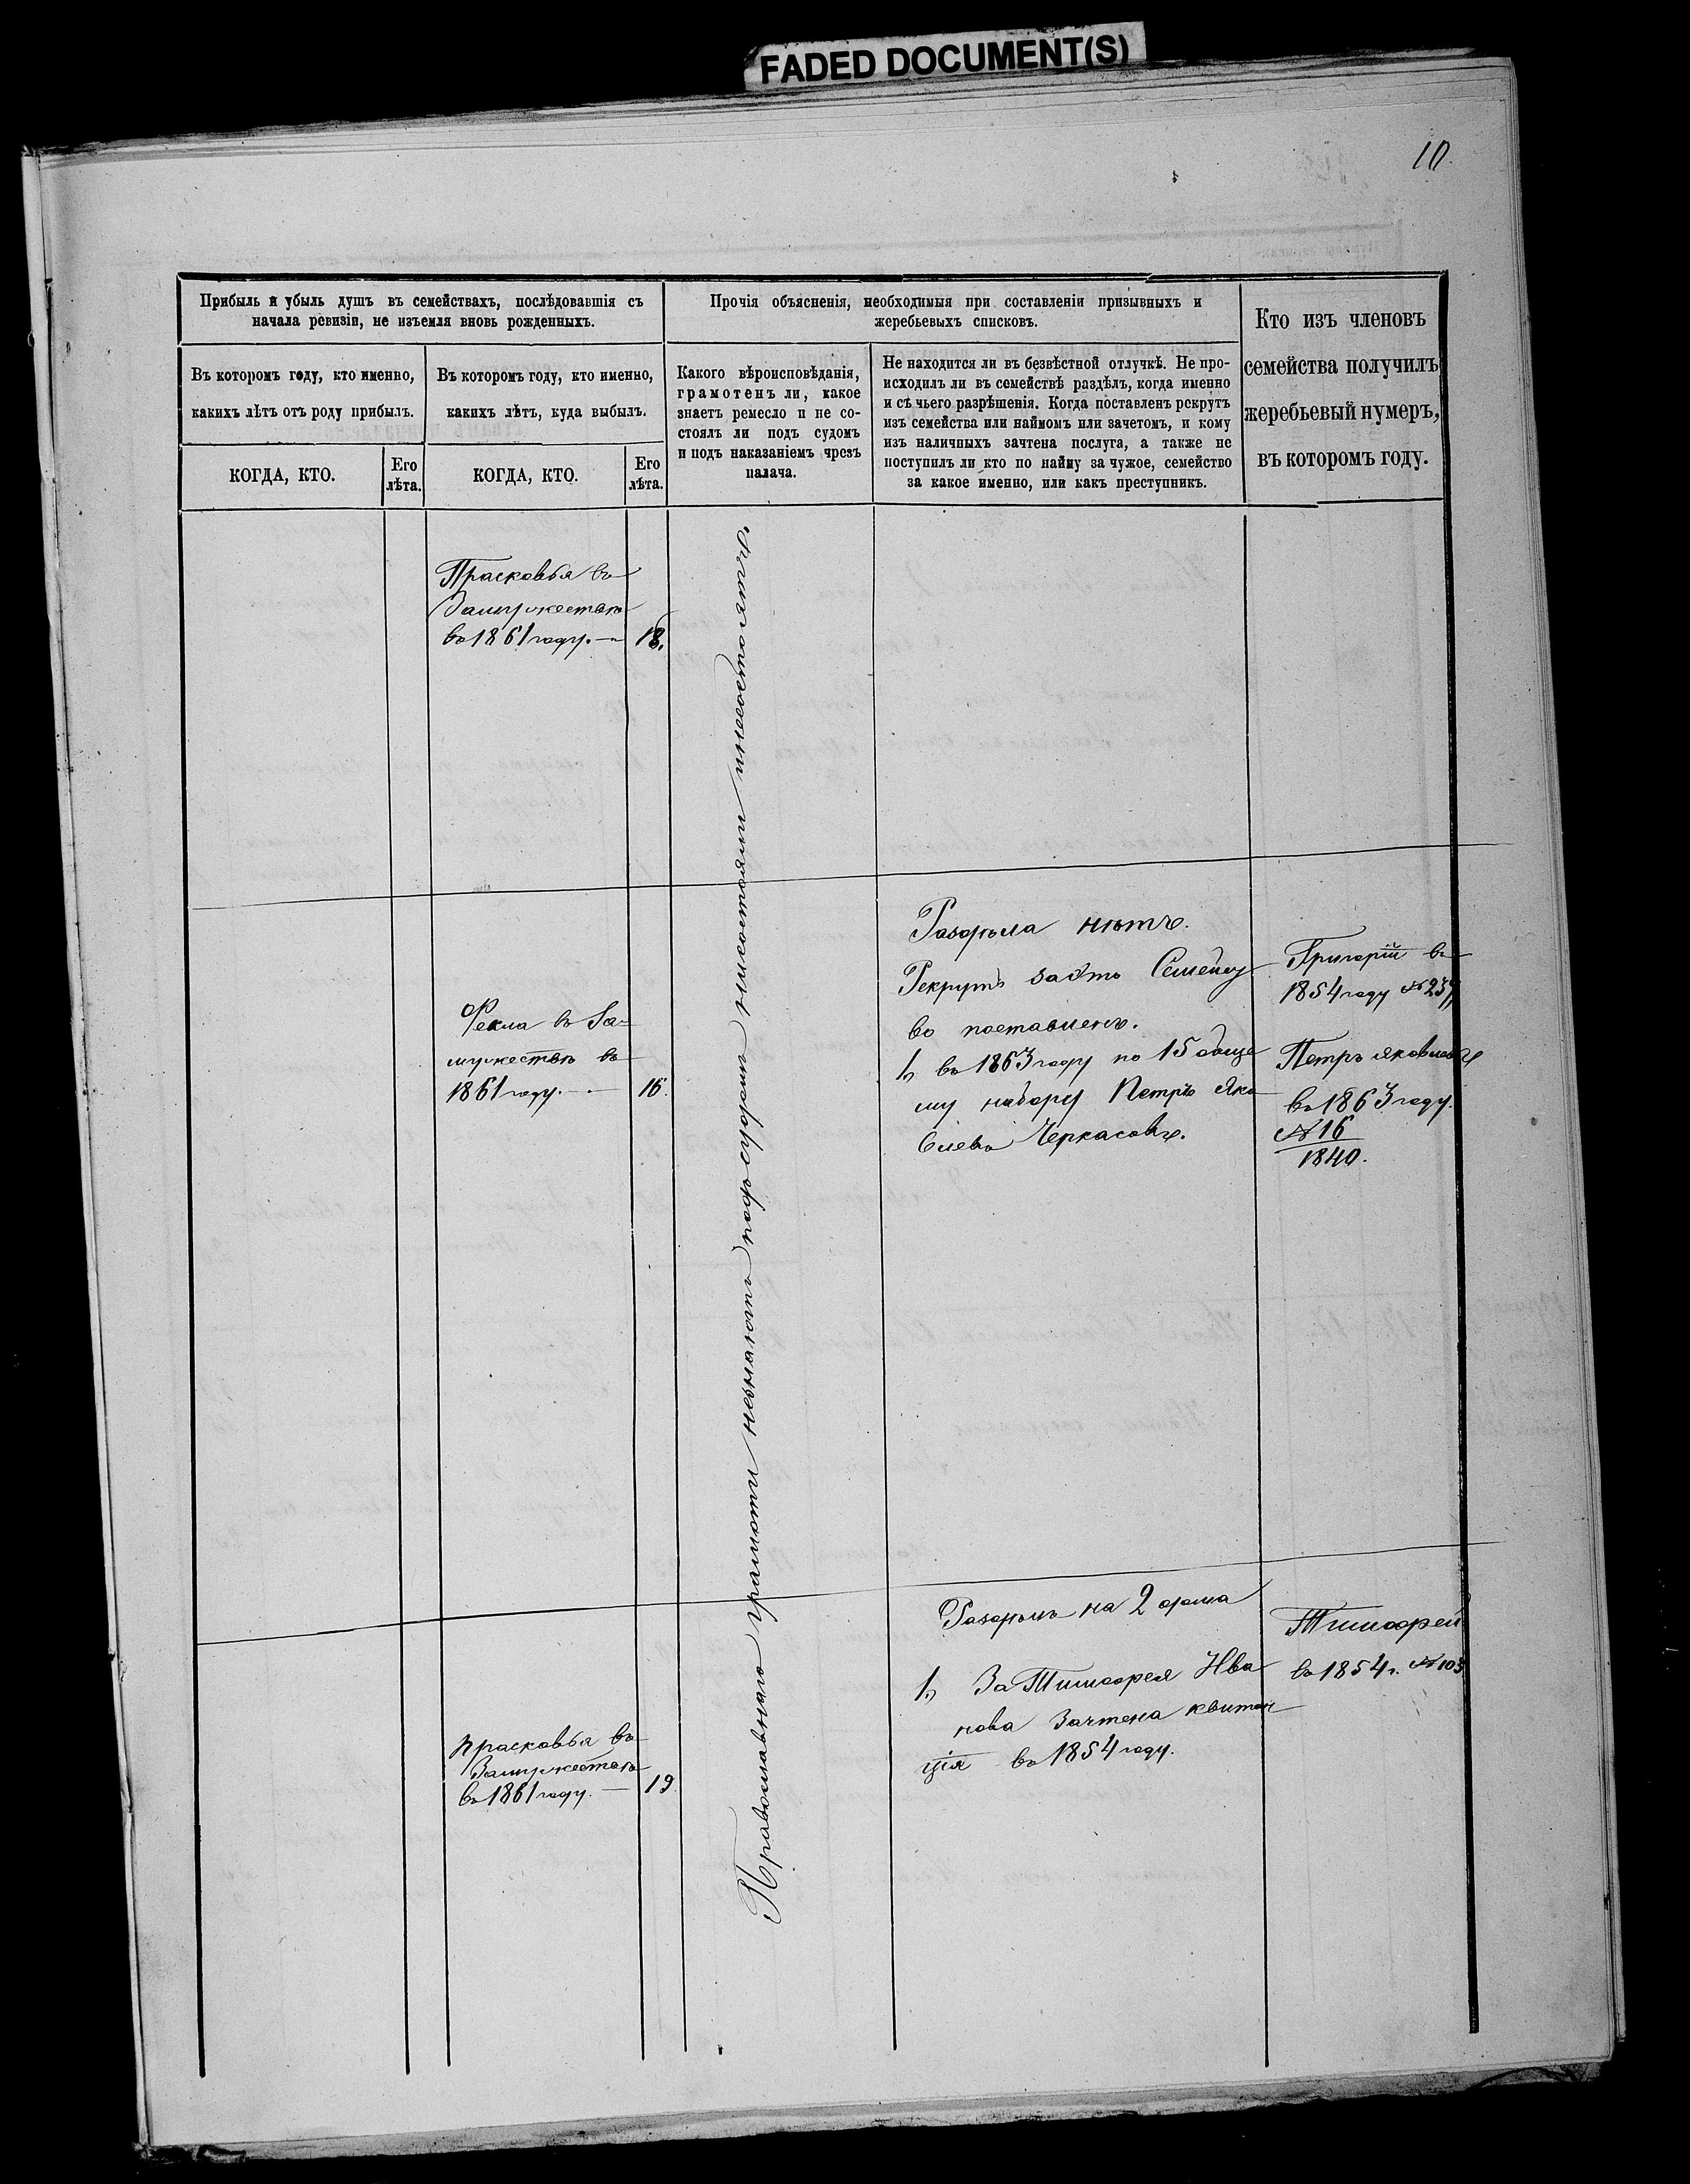 FADED DOCUMENT(S)
10.
Прибыль и убыль душъ въ семействахъ, послѣдовавшія съ
начала ревизіи, не изъемля вновь рожденныхъ.
Прочія объясненія, необходимыя при составленіи призывныхъ и
жеребьевыхъ списковъ.
Кто изъ членовъ
семейства получилъ
жеребьевый нумеръ,
въ которомъ году.
Въ которомъ году, кто именно,
какихъ лѣтъ отъ роду прибылъ.
Въ которомъ году, кто именно,
какихъ лѣтъ, куда выбылъ.
Какого вѣроисповѣданія,
грамотенъ ли, какое
знаетъ ремесло и не со-
стоялъ ли подъ судомъ
и подъ наказаніемъ чрезъ
палача.
Не находится ли въ безвѣстной отлучкѣ. Не про-
исходилъ ли въ семействѣ раздѣлъ, когда именно
и съ чьего разрѣшенія. Когда поставленъ рекрутъ
изъ семейства или наймомъ или зачетомъ, и кому
изъ наличныхъ зачтена послуга, а также не
поступилъ ли кто по найму за чужое, семейство
за какое именно, или какъ преступникъ.
КОГДА, КТО.
Его
лѣта.
КОГДА, КТО.
Его
лѣта.
Прасковья въ
Замужество
въ 1861 году. — 18.
Православнаго грамоти незнаютъ подъ судомъ нисостояли инесостоятъ.
Фекла въ За-
мужество въ
1861 году. — 16.
Раздѣла нѣтъ.
Рекрутъ заэто Семейст
во поставленъ.
1, въ 1863 году по 15 обще
му набору Петръ Яко
влевъ Черкасовъ.
Григорій въ
1854 году № 237
Петръ Яковлевъ
въ 1863 году.
№ 16
1840.
Прасковья въ
Замужество
въ 1861 году. — 19.
Раздѣлъ на 2 дома
1, За Тимофея Ива
нова Зачтена квитан
ція въ 1854 году.
Тимофей
въ 1854 г. № 103